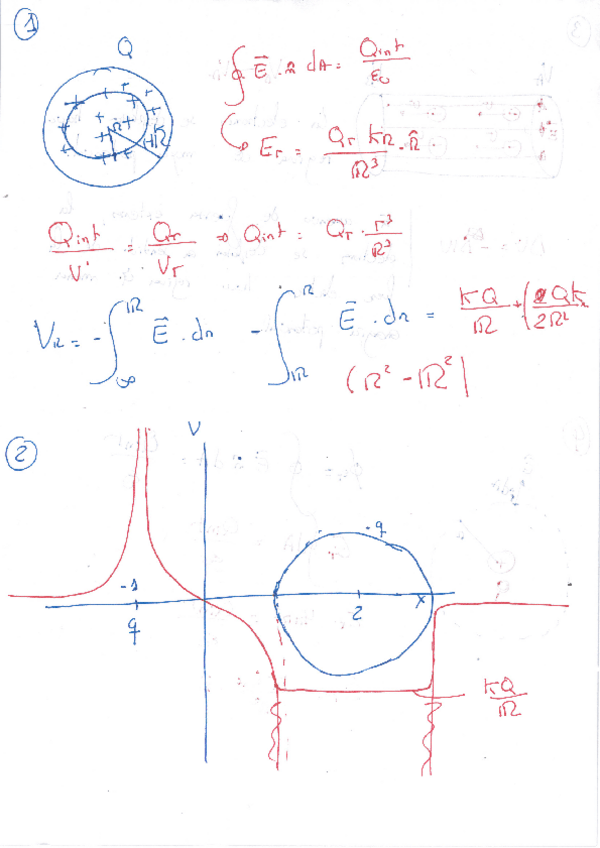 1
Q
∮ E⃗ . n dA = Qint / ε₀
Er = Qr kr / R³ . r̂
Qint / V' = Qr / Vr ⇒ Qint = Qr . r³ / R³
Vr = - ∫∞^R E⃗ . dr - ∫R^r E⃗ . dr = kQ / R + ( Qk / 2R²
(r² - R²)
2
V
-q
-1
2
x
q
kQ / R